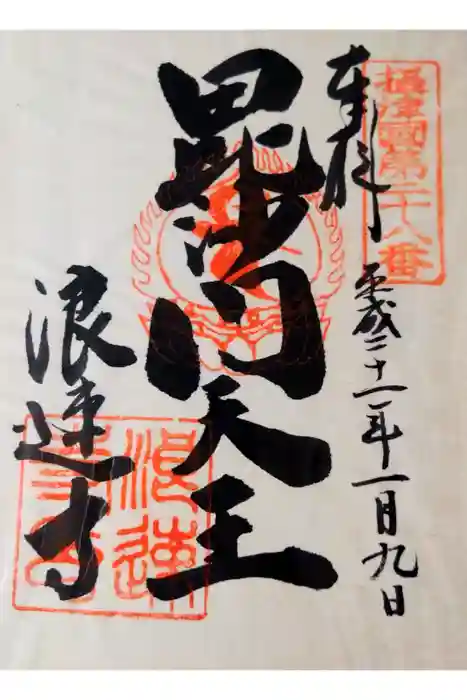 攝津國第二十八番
奉拝
平成二十一年一月九日
毘沙門天王
浪速寺
浪速
寺印